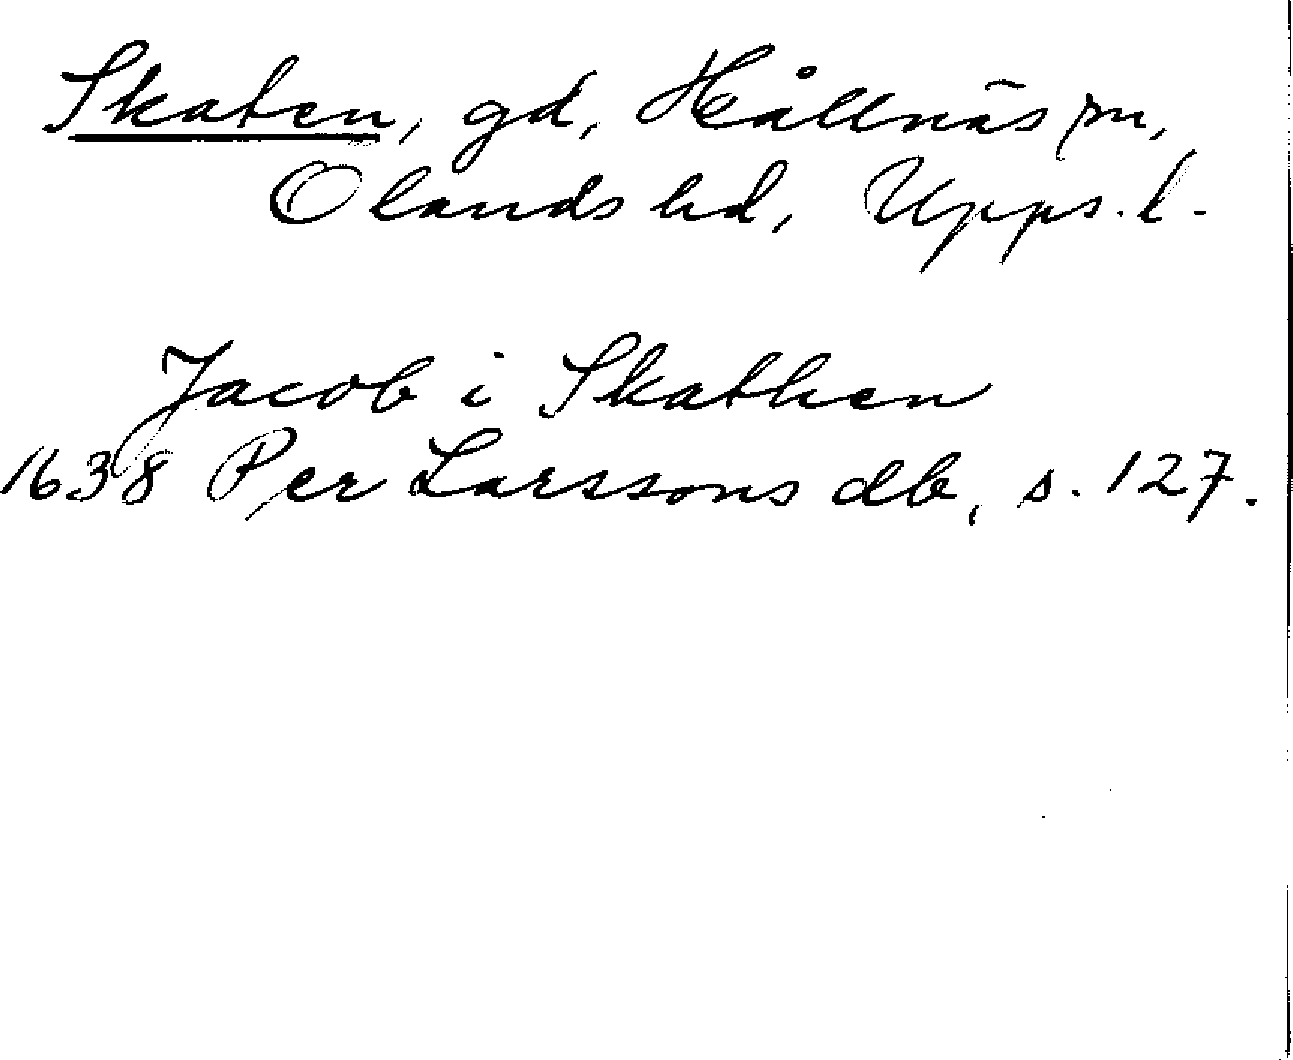 Skaten, gd, Hållnäs sn,
Olands hd, Upps. l.
Jacob i Skathen
1638 Per Larssons db, s. 127.